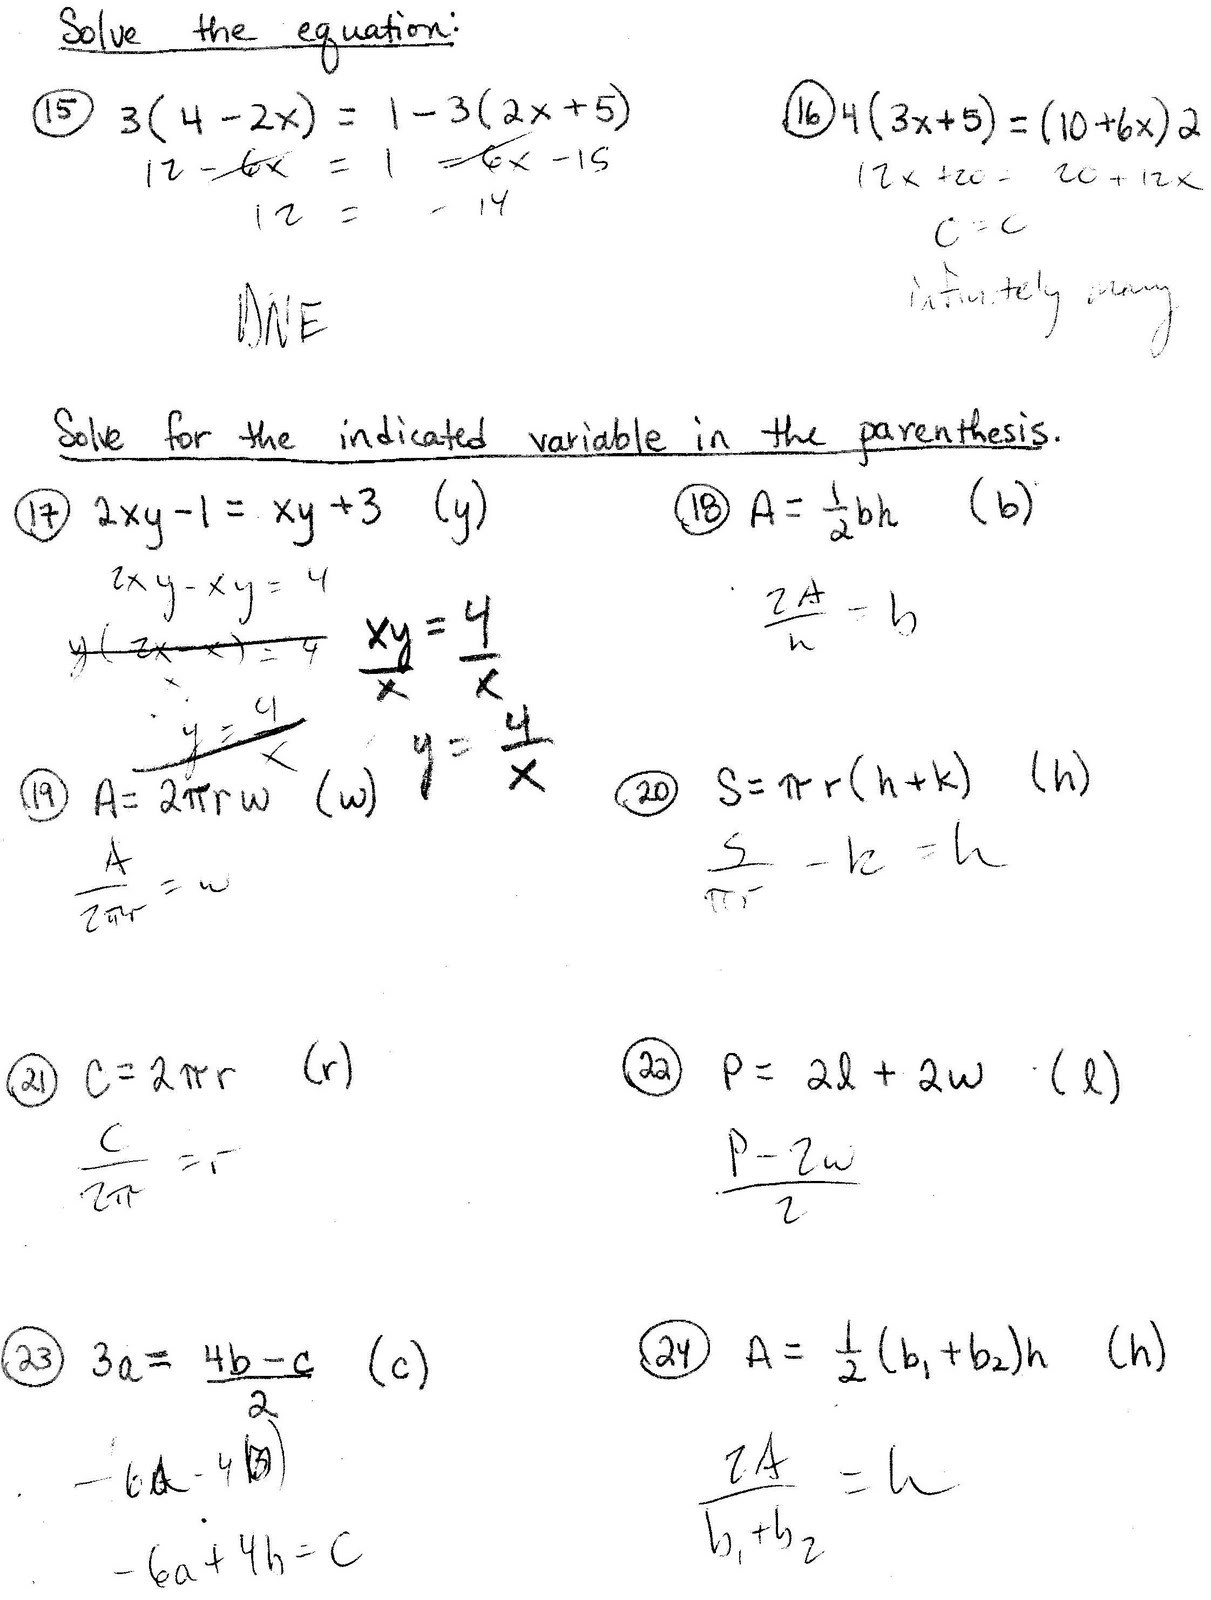 Solve the equation:
(15) 3(4-2x) = 1-3(2x+5)
12-6x = 1 -6x -15
12 = -14
DNE
(16) 4(3x+5) = (10+6x)2
12x+20 = 20+12x
C = C
infinitely many
Solve for the indicated variable in the parenthesis.
(17) 2xy-1 = xy+3 (y)
2xy-xy = 4
y(2x-x) = 4
x
y = 4/x
xy/x = 4/x
y = 4/x
(18) A = 1/2 bh (b)
2A/h = b
(19) A = 2πrw (w)
A/2πr = w
(20) S = πr(h+k) (h)
S/πr - k = h
(21) C = 2πr (r)
C/2π = r
(22) P = 2l + 2w (l)
P-2w/2
(23) 3a = 4b-c/2 (c)
-6a+4b = c
(24) A = 1/2 (b₁+b₂)h (h)
2A/b₁+b₂ = h